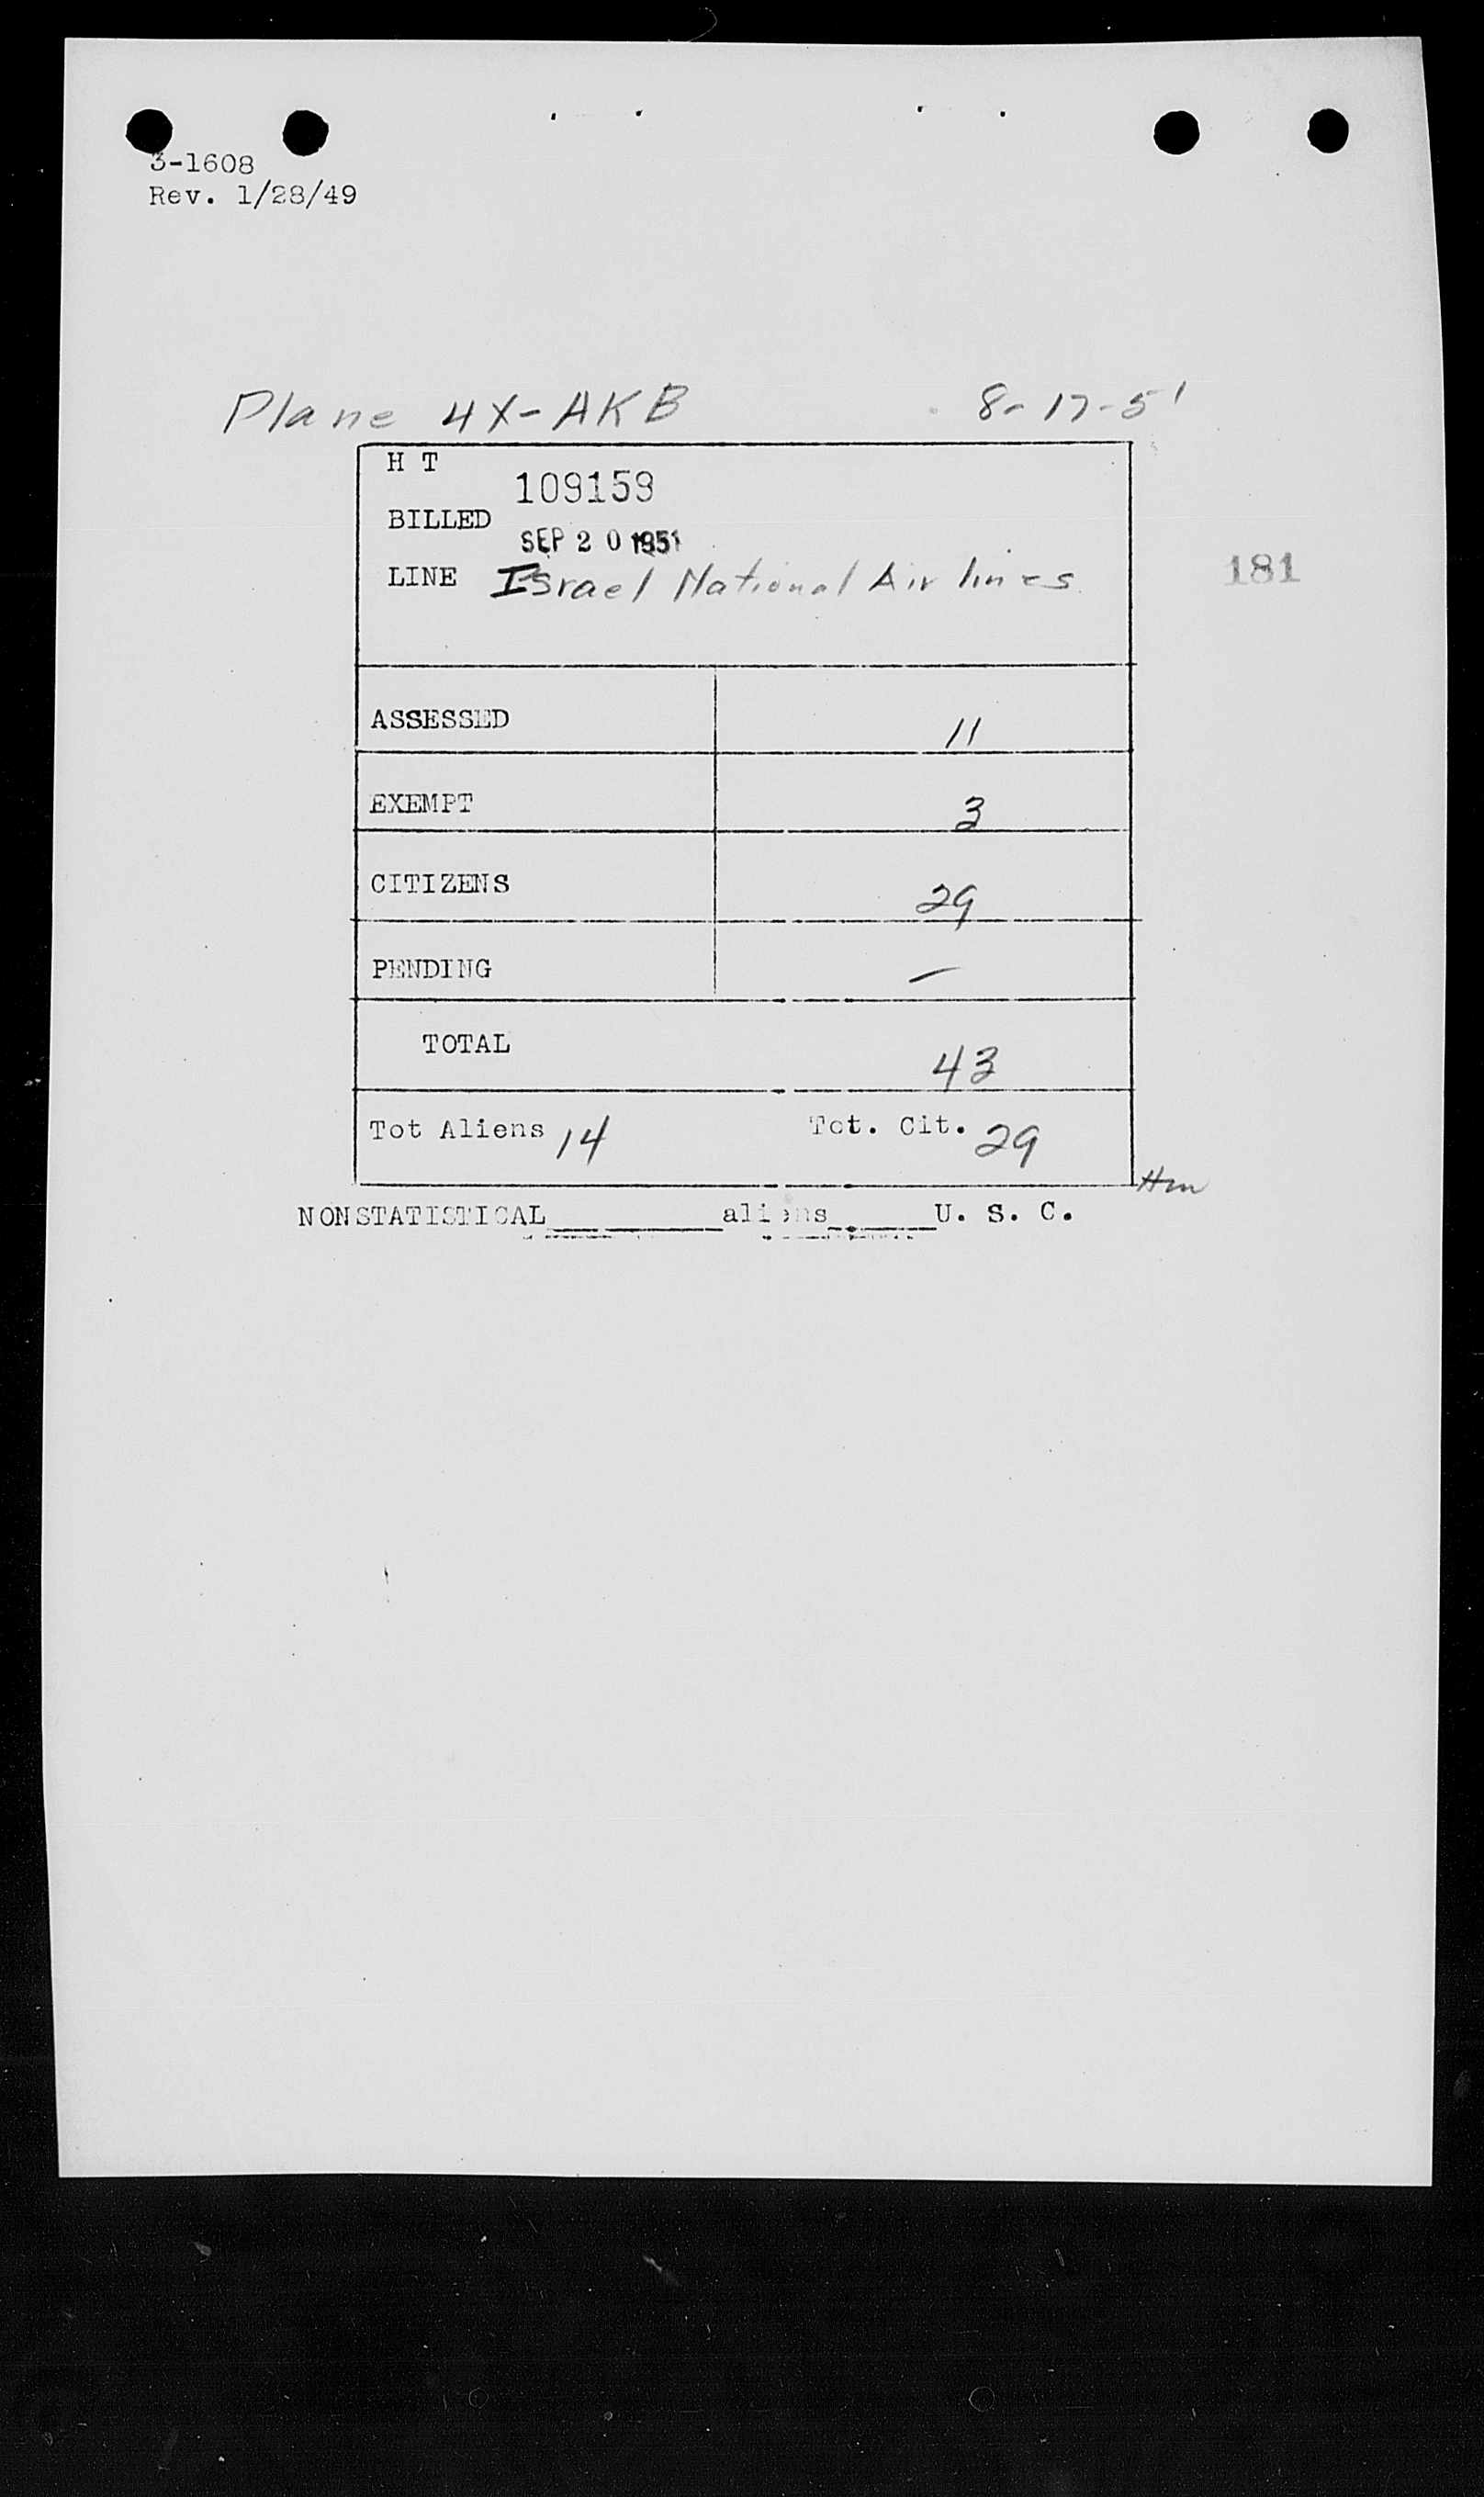 3-1608
Rev. 1/28/49
Plane 4X-AKB 8-17-51
H T 109159
BILLED SEP 20 1951
LINE Israel National Air lines
181
ASSESSED 11
EXEMPT 3
CITIZENS 29
PENDING —
TOTAL 43
Tot Aliens 14 Tot. Cit. 29
Hm
NONSTATISTICAL__________aliens______U. S. C.